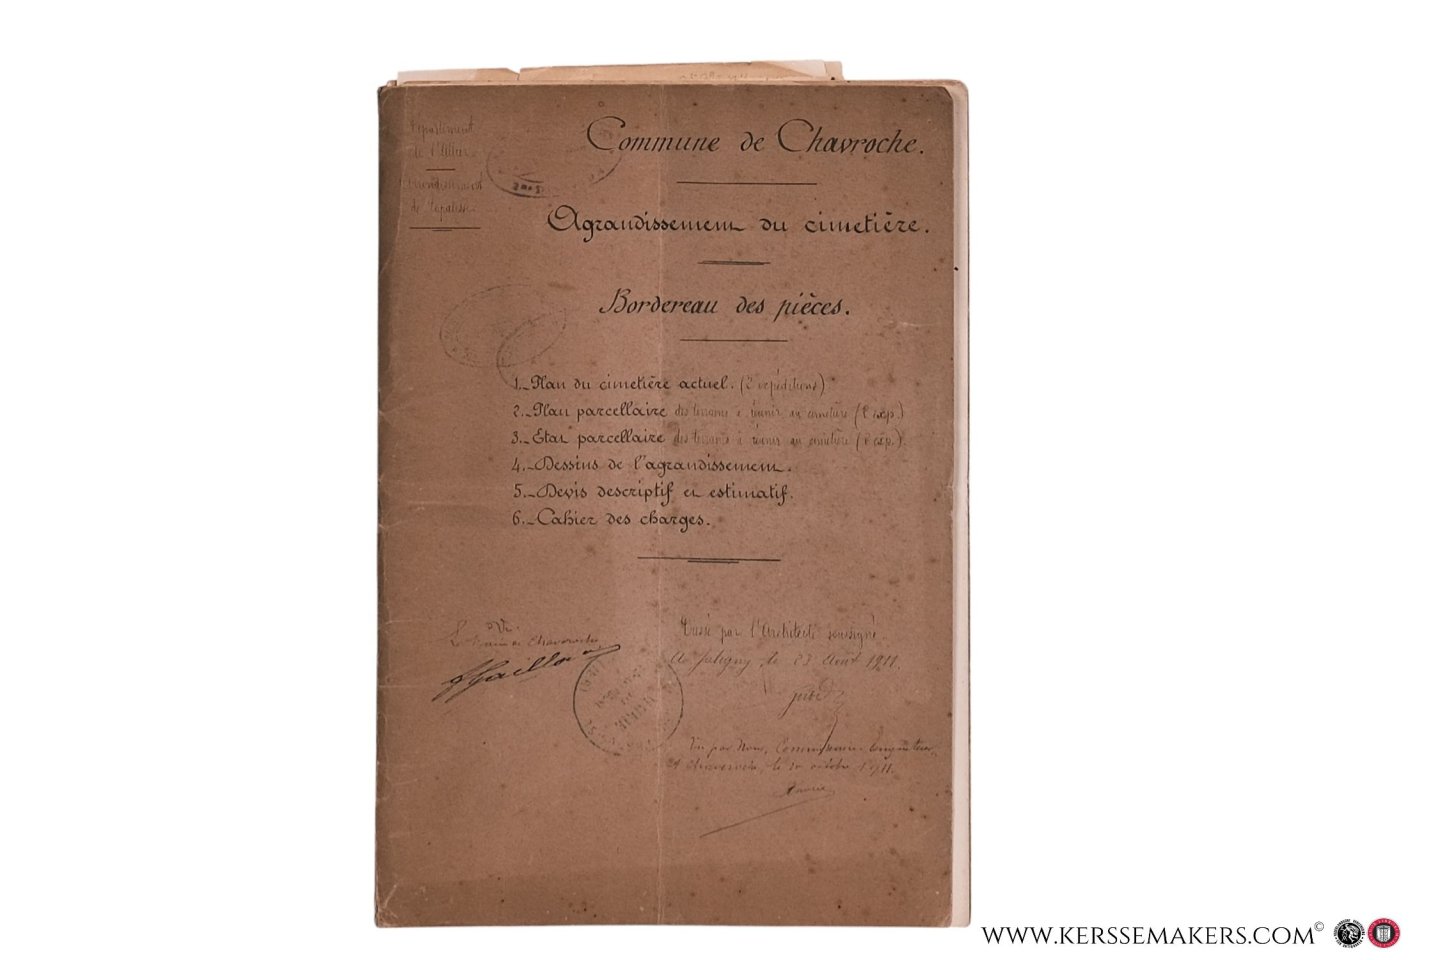 Département
de l'Allier
Arrondissement
de Lapalisse
Commune de Chavroche.
Agrandissement du cimetière.
Bordereau des pièces.
1._Plan du cimetière actuel. (2 expéditions)
2._Plan parcellaire des terrains à réunir au cimetière (2 exp.)
3._Etat parcellaire des terrains à réunir au cimetière (2 exp.)
4._Dessins de l'agrandissement.
5._Devis descriptif et estimatif.
6._Cahier des charges.
Vu
Le Maire de Chavroche
Dressé par l'Architecte soussigné.
A Jaligny, le 23 Août 1911.
Vu par Nous, Commissaire Enquêteur,
A Chavroche, le 20 octobre 1911.
WWW.KERSSEMAKERS.COM©